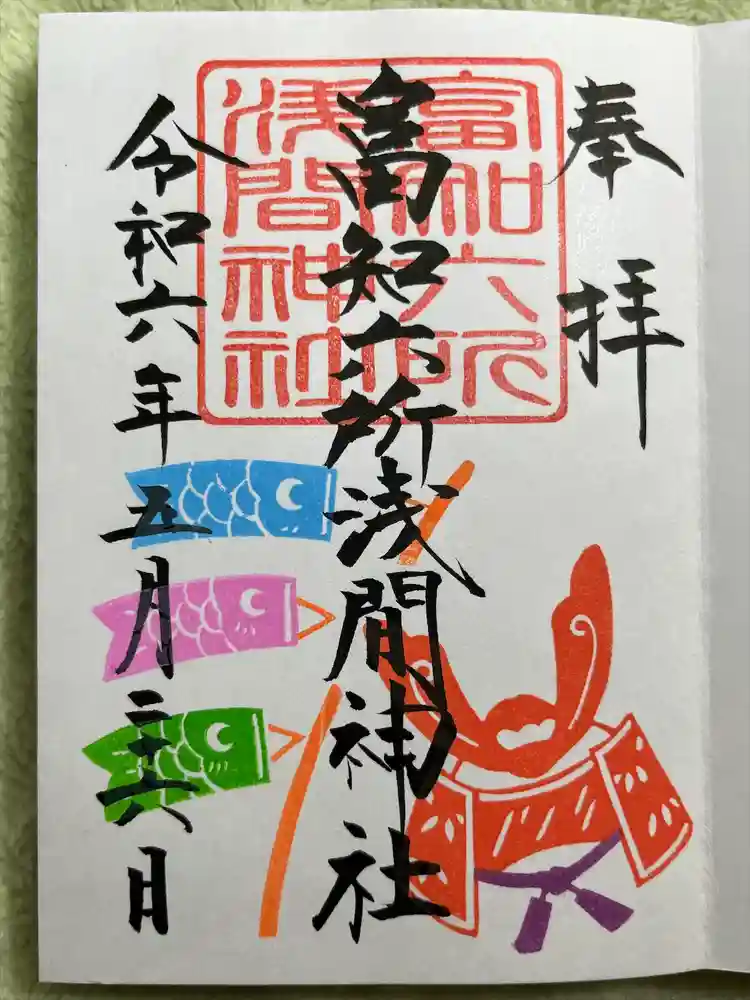 奉拝
富知六所浅間神社
富知六所
浅間神社
令和六年五月二十六日